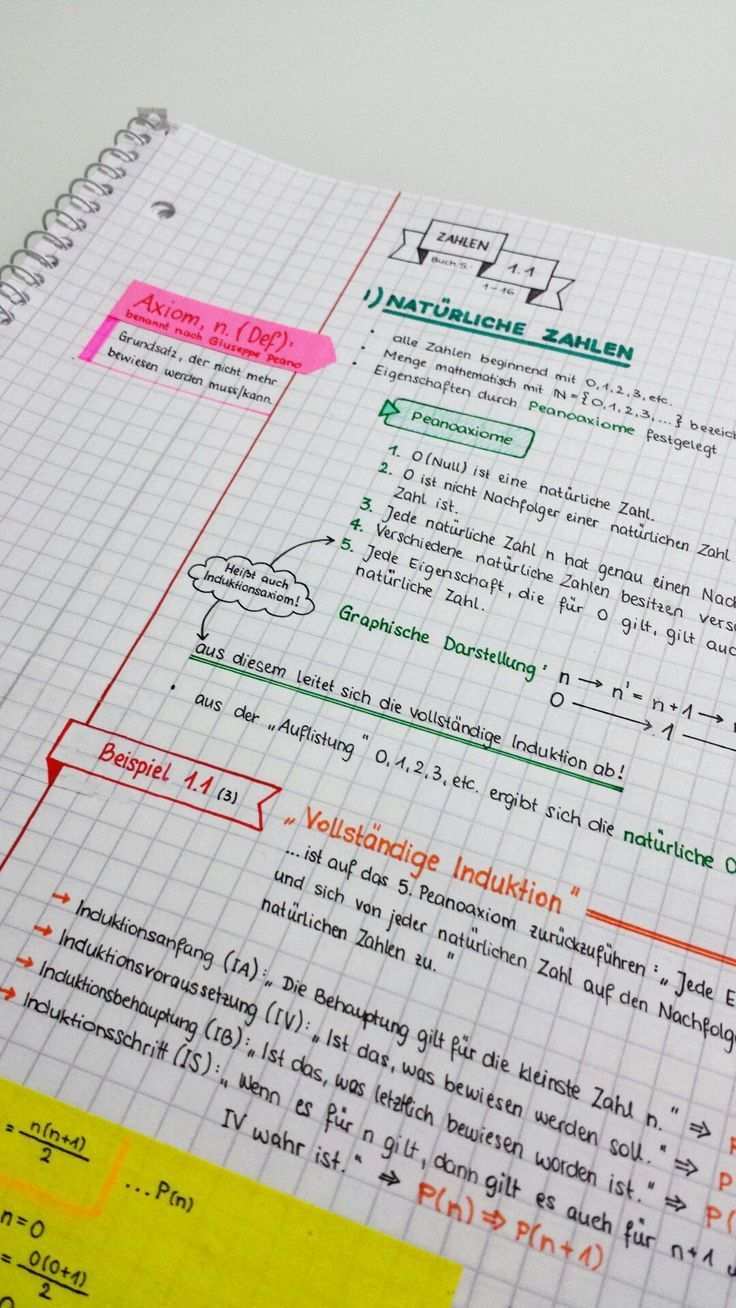 ZAHLEN
Buch S.
1.1
1-16
1) NATÜRLICHE ZAHLEN
• alle Zahlen beginnend mit 0,1,2,3, etc.
• Menge mathematisch mit ℕ = {0,1,2,3,...} bezeich
• Eigenschaften durch Peanoaxiome festgelegt
Axiom, n. (Def):
benannt nach Giuseppe Peano
Grundsatz, der nicht mehr
bewiesen werden muss/kann.
Peanoaxiome
1. 0 (Null) ist eine natürliche Zahl.
2. 0 ist nicht Nachfolger einer natürlichen Zahl
Zahl ist.
3. Jede natürliche Zahl n hat genau einen Nach
4. Verschiedene natürliche Zahlen besitzen vers
5. Jede Eigenschaft, die für 0 gilt, gilt auc
natürliche Zahl.
Heißt auch
Induktionsaxiom!
Graphische Darstellung: n → n' = n+1 →
0 → 1
aus diesem leitet sich die vollständige Induktion ab!
• aus der „Auflistung" 0,1,2,3, etc. ergibt sich die natürliche O
Beispiel 1.1 (3)
„Vollständige Induktion"
...ist auf das 5. Peanoaxiom zurückzuführen: „Jede E
und sich von jeder natürlichen Zahl auf den Nachfolge
natürlichen Zahlen zu."
→ Induktionsanfang (IA): „Die Behauptung gilt für die kleinste Zahl n." ⇒
→ Induktionsvoraussetzung (IV): „Ist das, was bewiesen werden soll." ⇒ P
→ Induktionsbehauptung (IB): „Ist das, was letztlich bewiesen worden ist." ⇒ P(
→ Induktionsschritt (IS): „Wenn es für n gilt, dann gilt es auch für n+1 u
IV wahr ist." ⇒ P(n) ⇒ P(n+1)
= n(n+1)/2 ...P(n)
n=0
= 0(0+1)/2